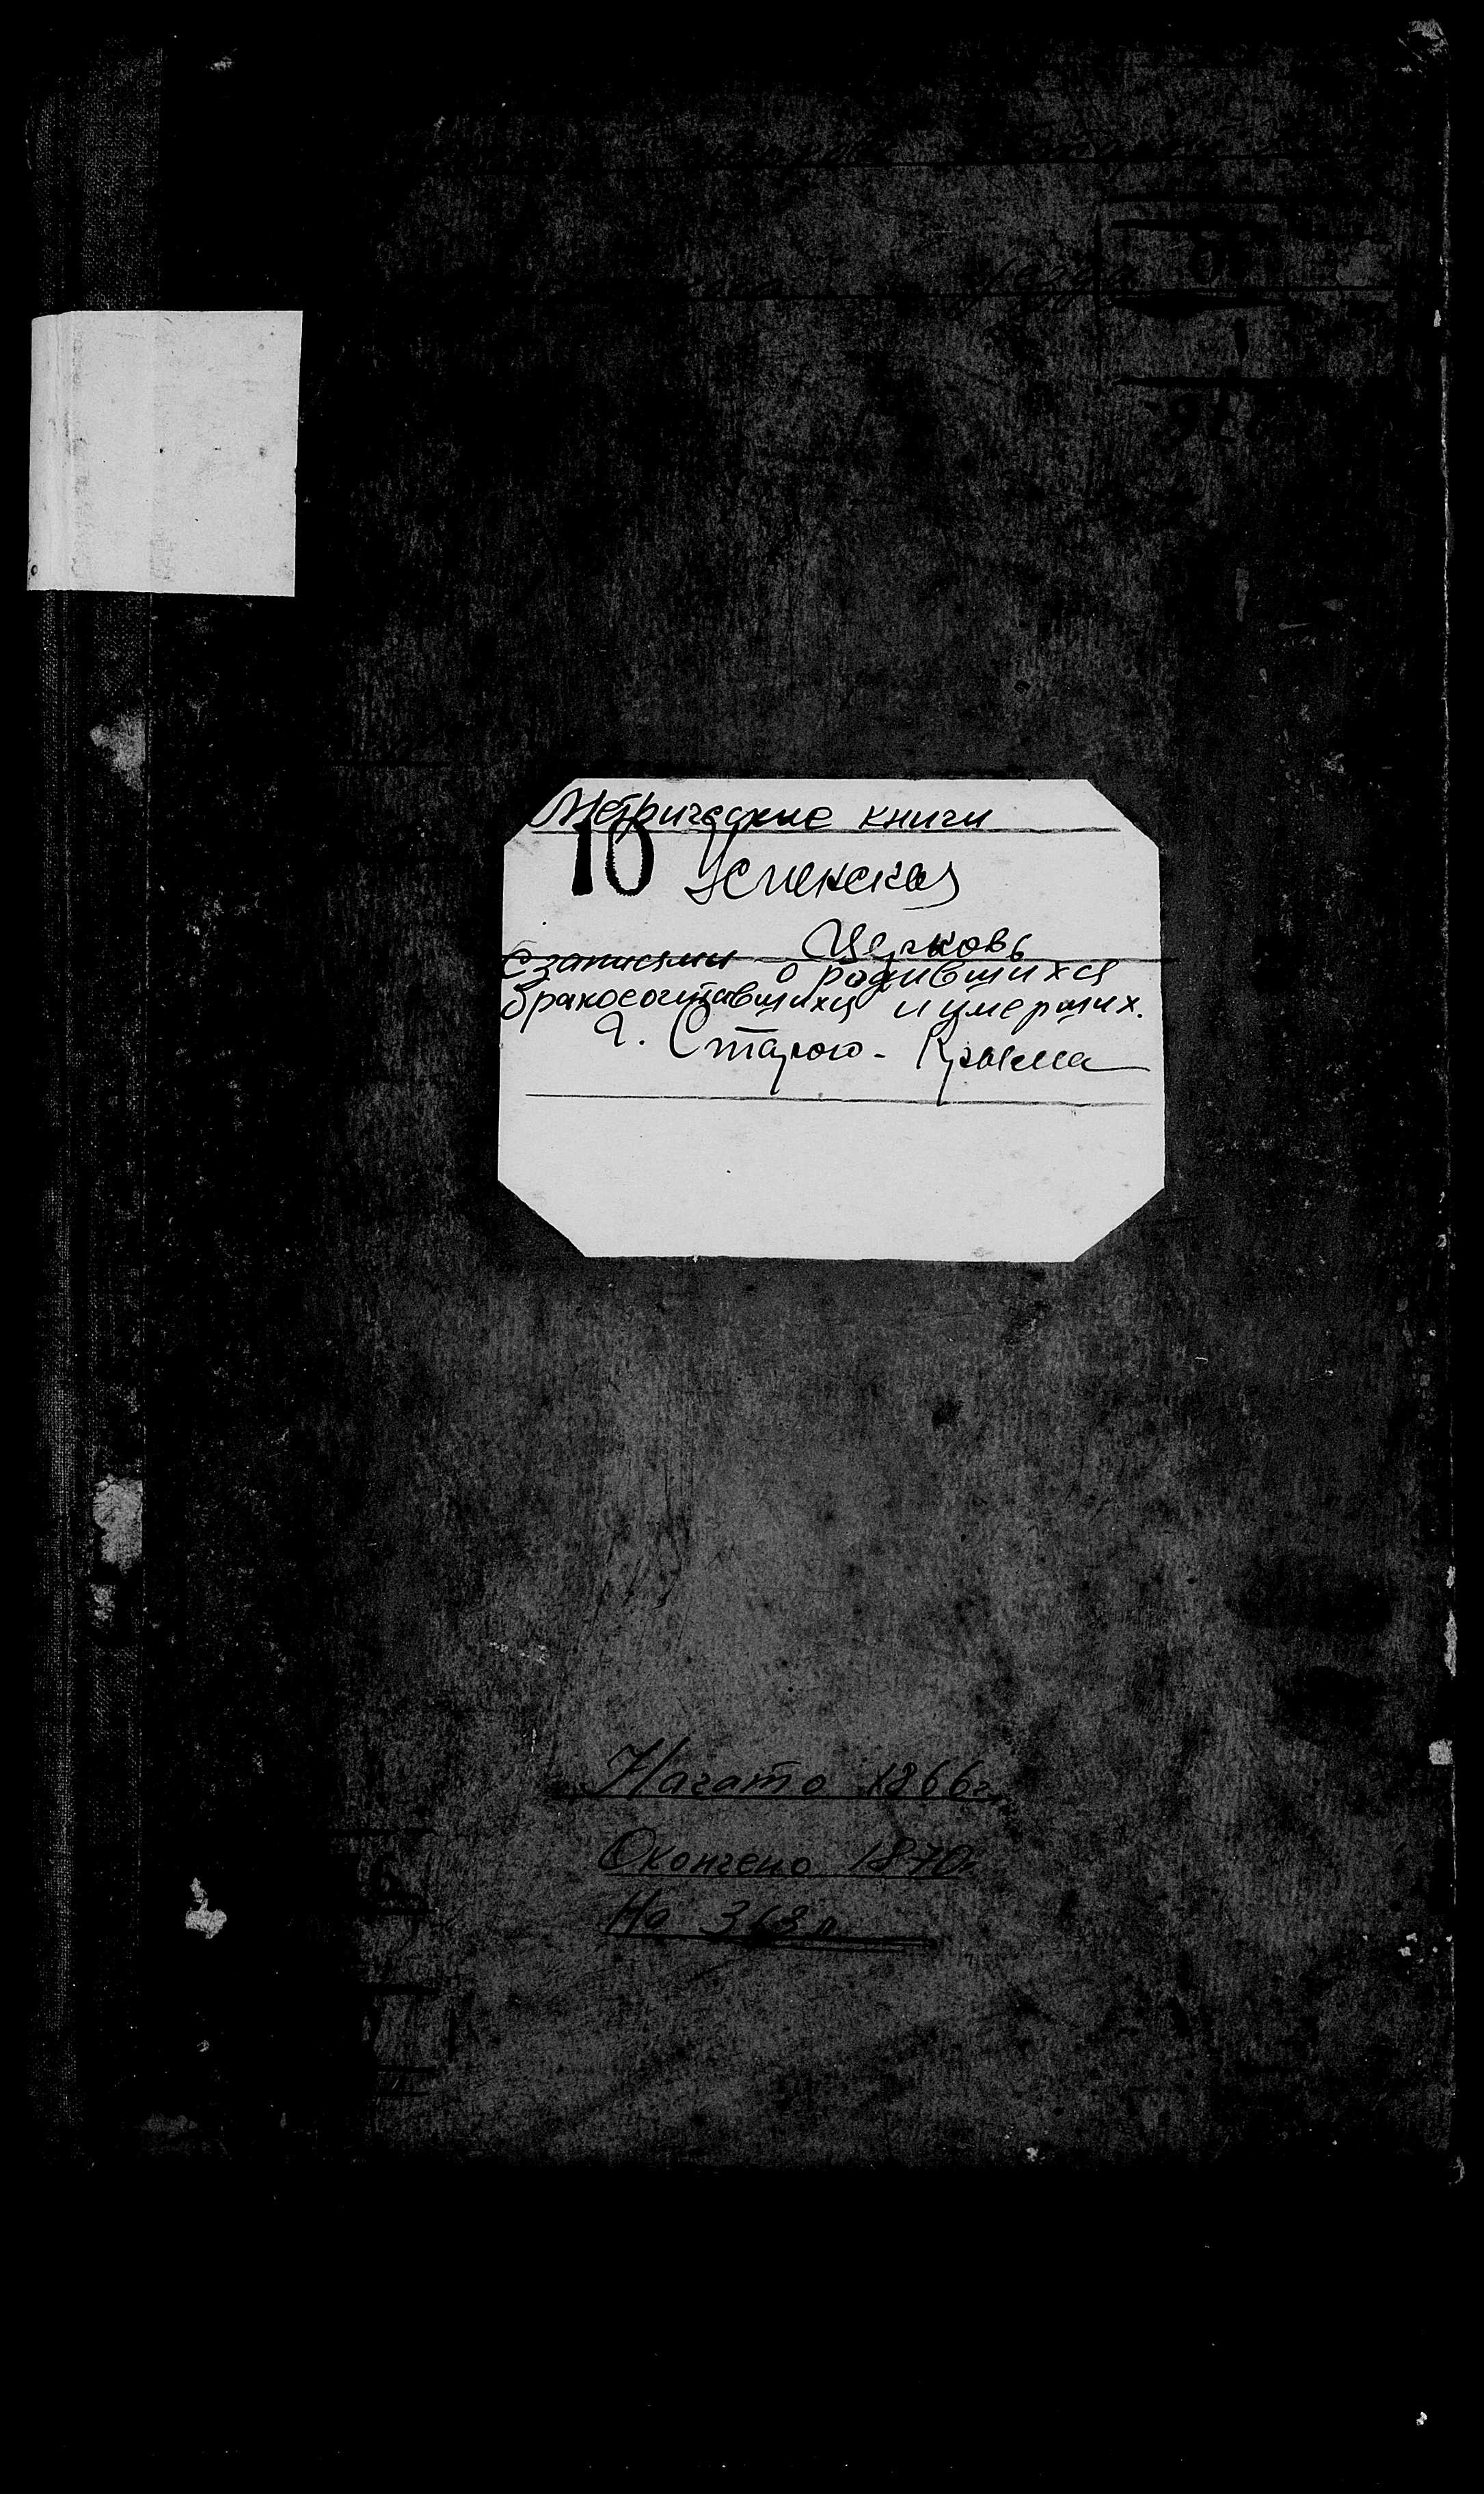 уезда
Метрические книги
10 Успенская
Церковь
с записями о родившихся
бракосочитавшихся и умерших.
г. Старого-Крыма
Начато 1866г.
Окончено 1870г.
На 363 л.